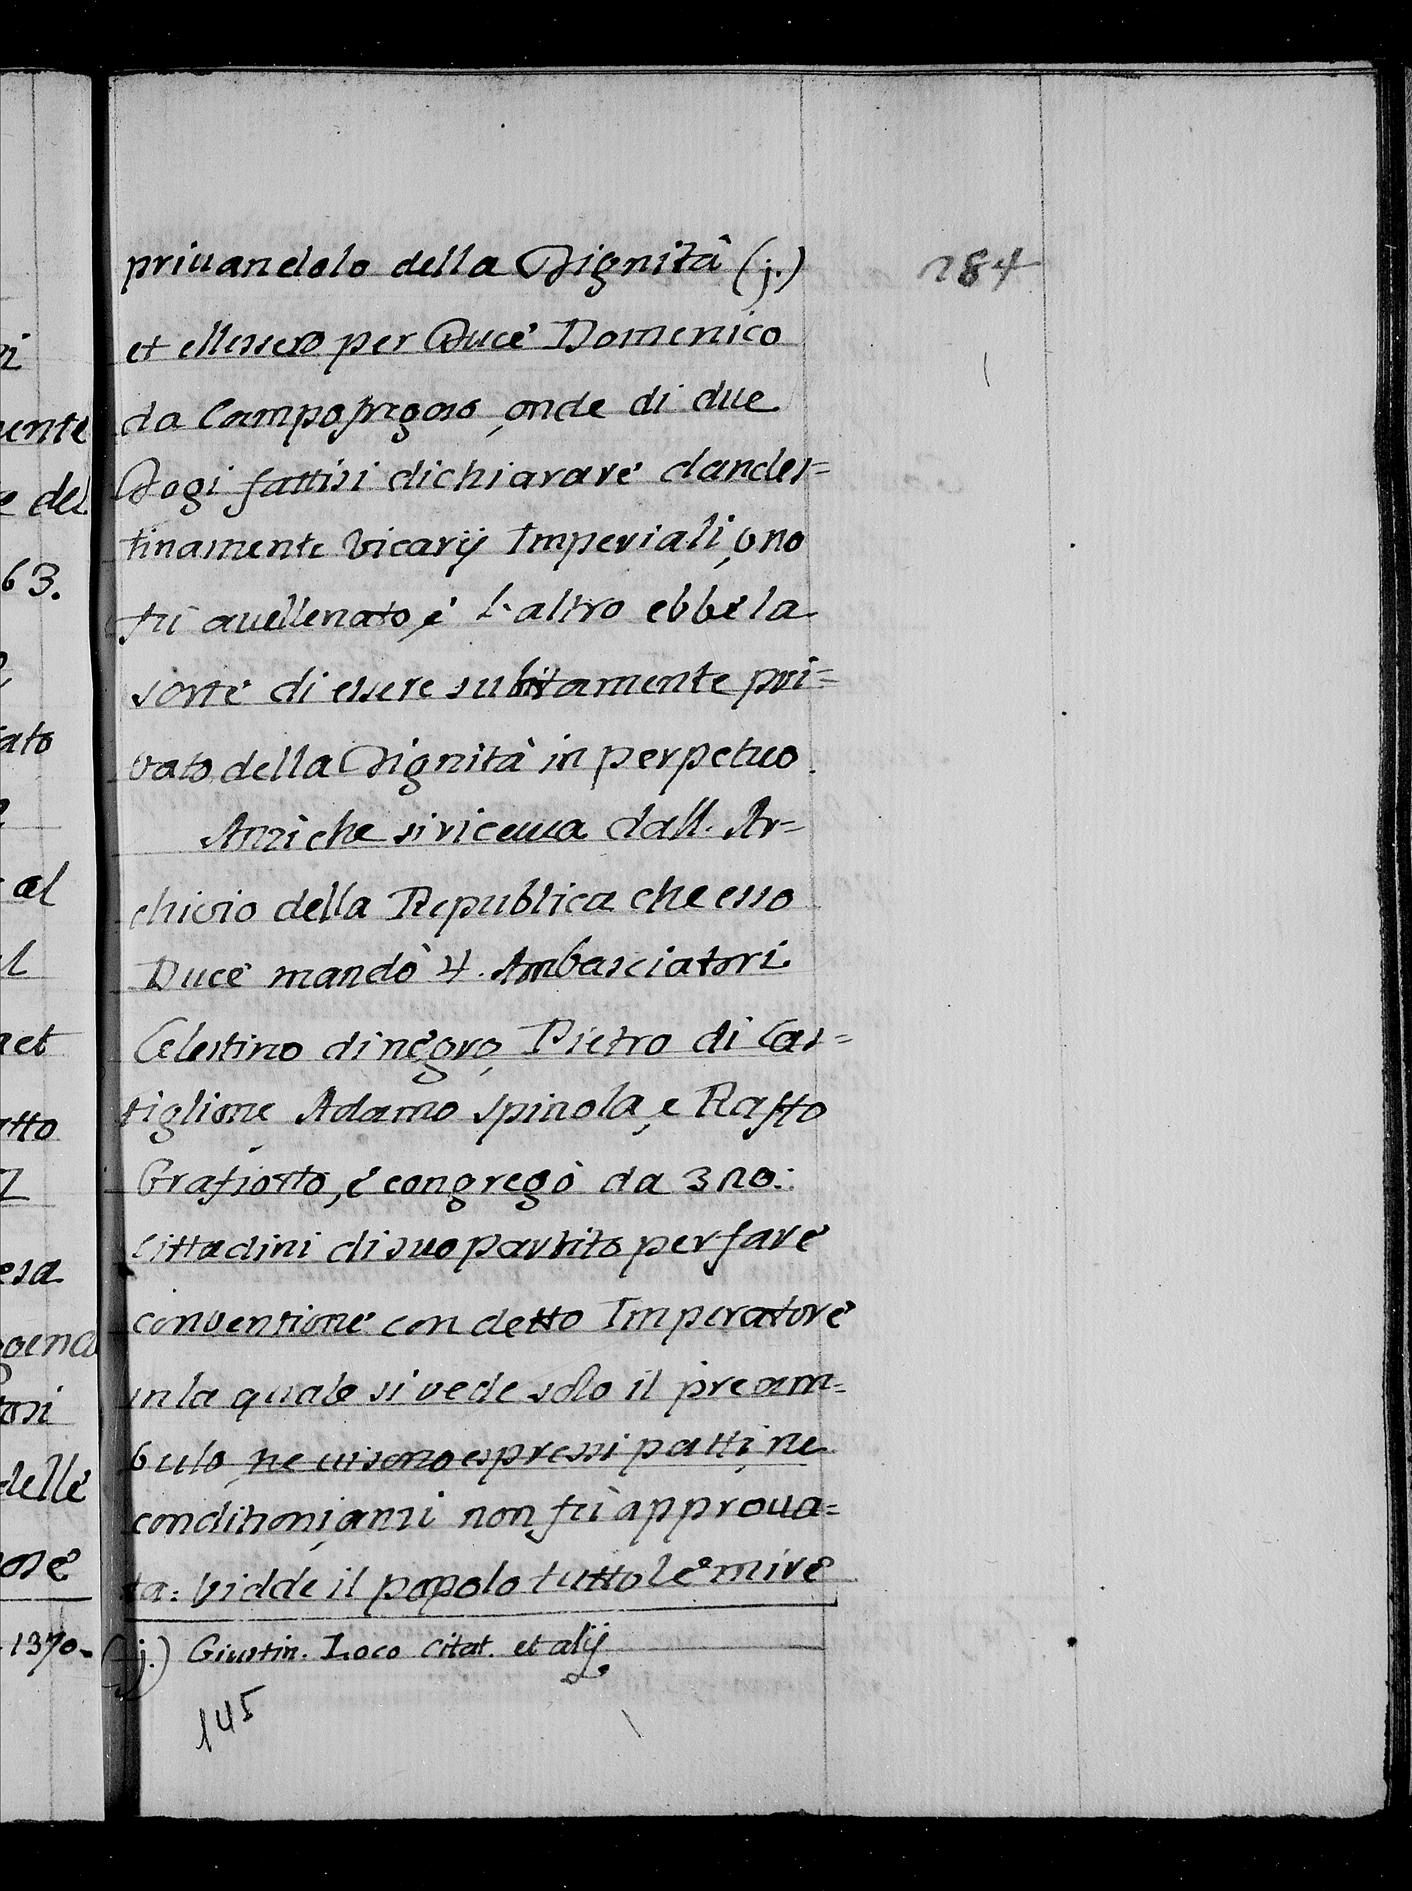 priuandolo della Dignità (j.)
284
et ellessero per Duce Domenico
da Campofregoso, onde di due
Dogi fattisi dichiarare clandes=
tinamente Vicarij Imperiali, uno
fù auellenato, e l'altro ebbe la
sorte di essere subitamente pri=
vato della Dignità in perpetuo.
Anzi che si riceuua dall. Ar=
chivio della Republica che esso
Duce mandò 4. Ambasciatori
Celestino di negro, Pietro di Cas=
tiglione, Adamo Spinola, e Raffo
e congregò da 320:
Cittadini di suo partito per fare
conventione con detto Imperatore
in la quale si vede solo il pream=
bulo, ne ui sono espressi patti, ne
conditioni, anzi non fù approua=
ta: Vidde il popolo tutto le mire
(j.) Giustin. Loco Citat. et alij
145
ente
e del
63.
ato
al
et
tto
esa
osi
delle
1370.